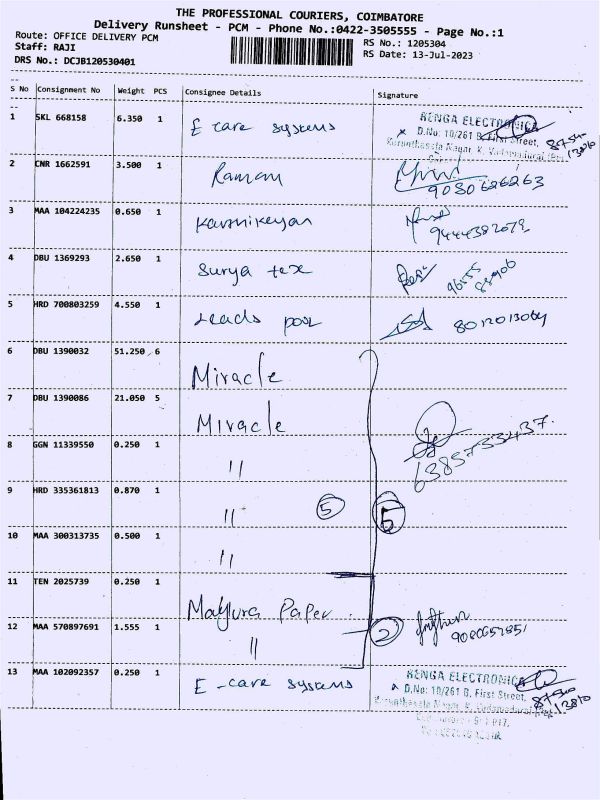 THE PROFESSIONAL COURIERS, COIMBATORE
Delivery Runsheet - PCM - Phone No.:0422-3505555 - Page No.:1
Route: OFFICE DELIVERY PCM
RS No.: 1205304
Staff: RAJI
RS Date: 13-Jul-2023
DRS No.: DCJB120530401
S No Consignment No Weight PCS Consignee Details Signature
1 SKL 668158 6.350 1 E care systems
RENGA ELECTRONICA
D.No: 10/261 B, First Street,
2 CNR 1662591 3.500 1 Raman
9080626263
3 MAA 104224235 0.650 1 Karthikeyan
9444382079
4 DBU 1369293 2.650 1 Surya tex
5 HRD 700803259 4.550 1 Leads pool
8012013064
6 DBU 1390032 51.250 6 Miracle
7 DBU 1390086 21.050 5 Miracle
6385733437
8 GGN 11339550 0.250 1 "
9 HRD 335361813 0.870 1 " 5 5
10 MAA 300313735 0.500 1 "
11 TEN 2025739 0.250 1 Mayura Paper
12 MAA 570897691 1.555 1 " 2
13 MAA 102092357 0.250 1 E-care systems
RENGA ELECTRONICA
D.No: 10/261 B, First Street,